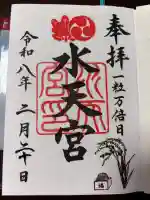 奉拝
一粒万倍日
水天宮
令和八年
二月二十日